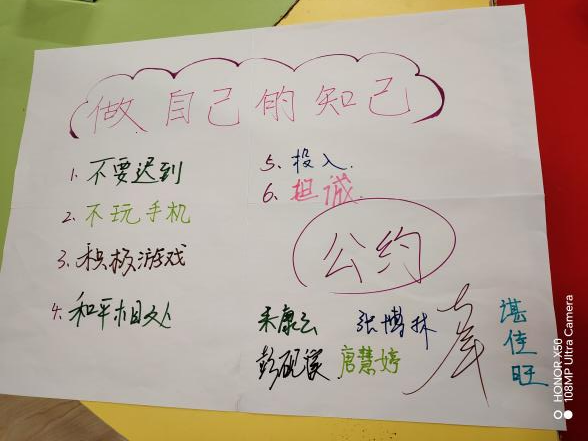 做自己的知己
1. 不要迟到
2. 不玩手机
3. 积极游戏
4. 和平相处
5. 投入.
6. 坦诚.
公约
张博林
唐慧婷
湛佳旺
HONOR X50
108MP Ultra Camera